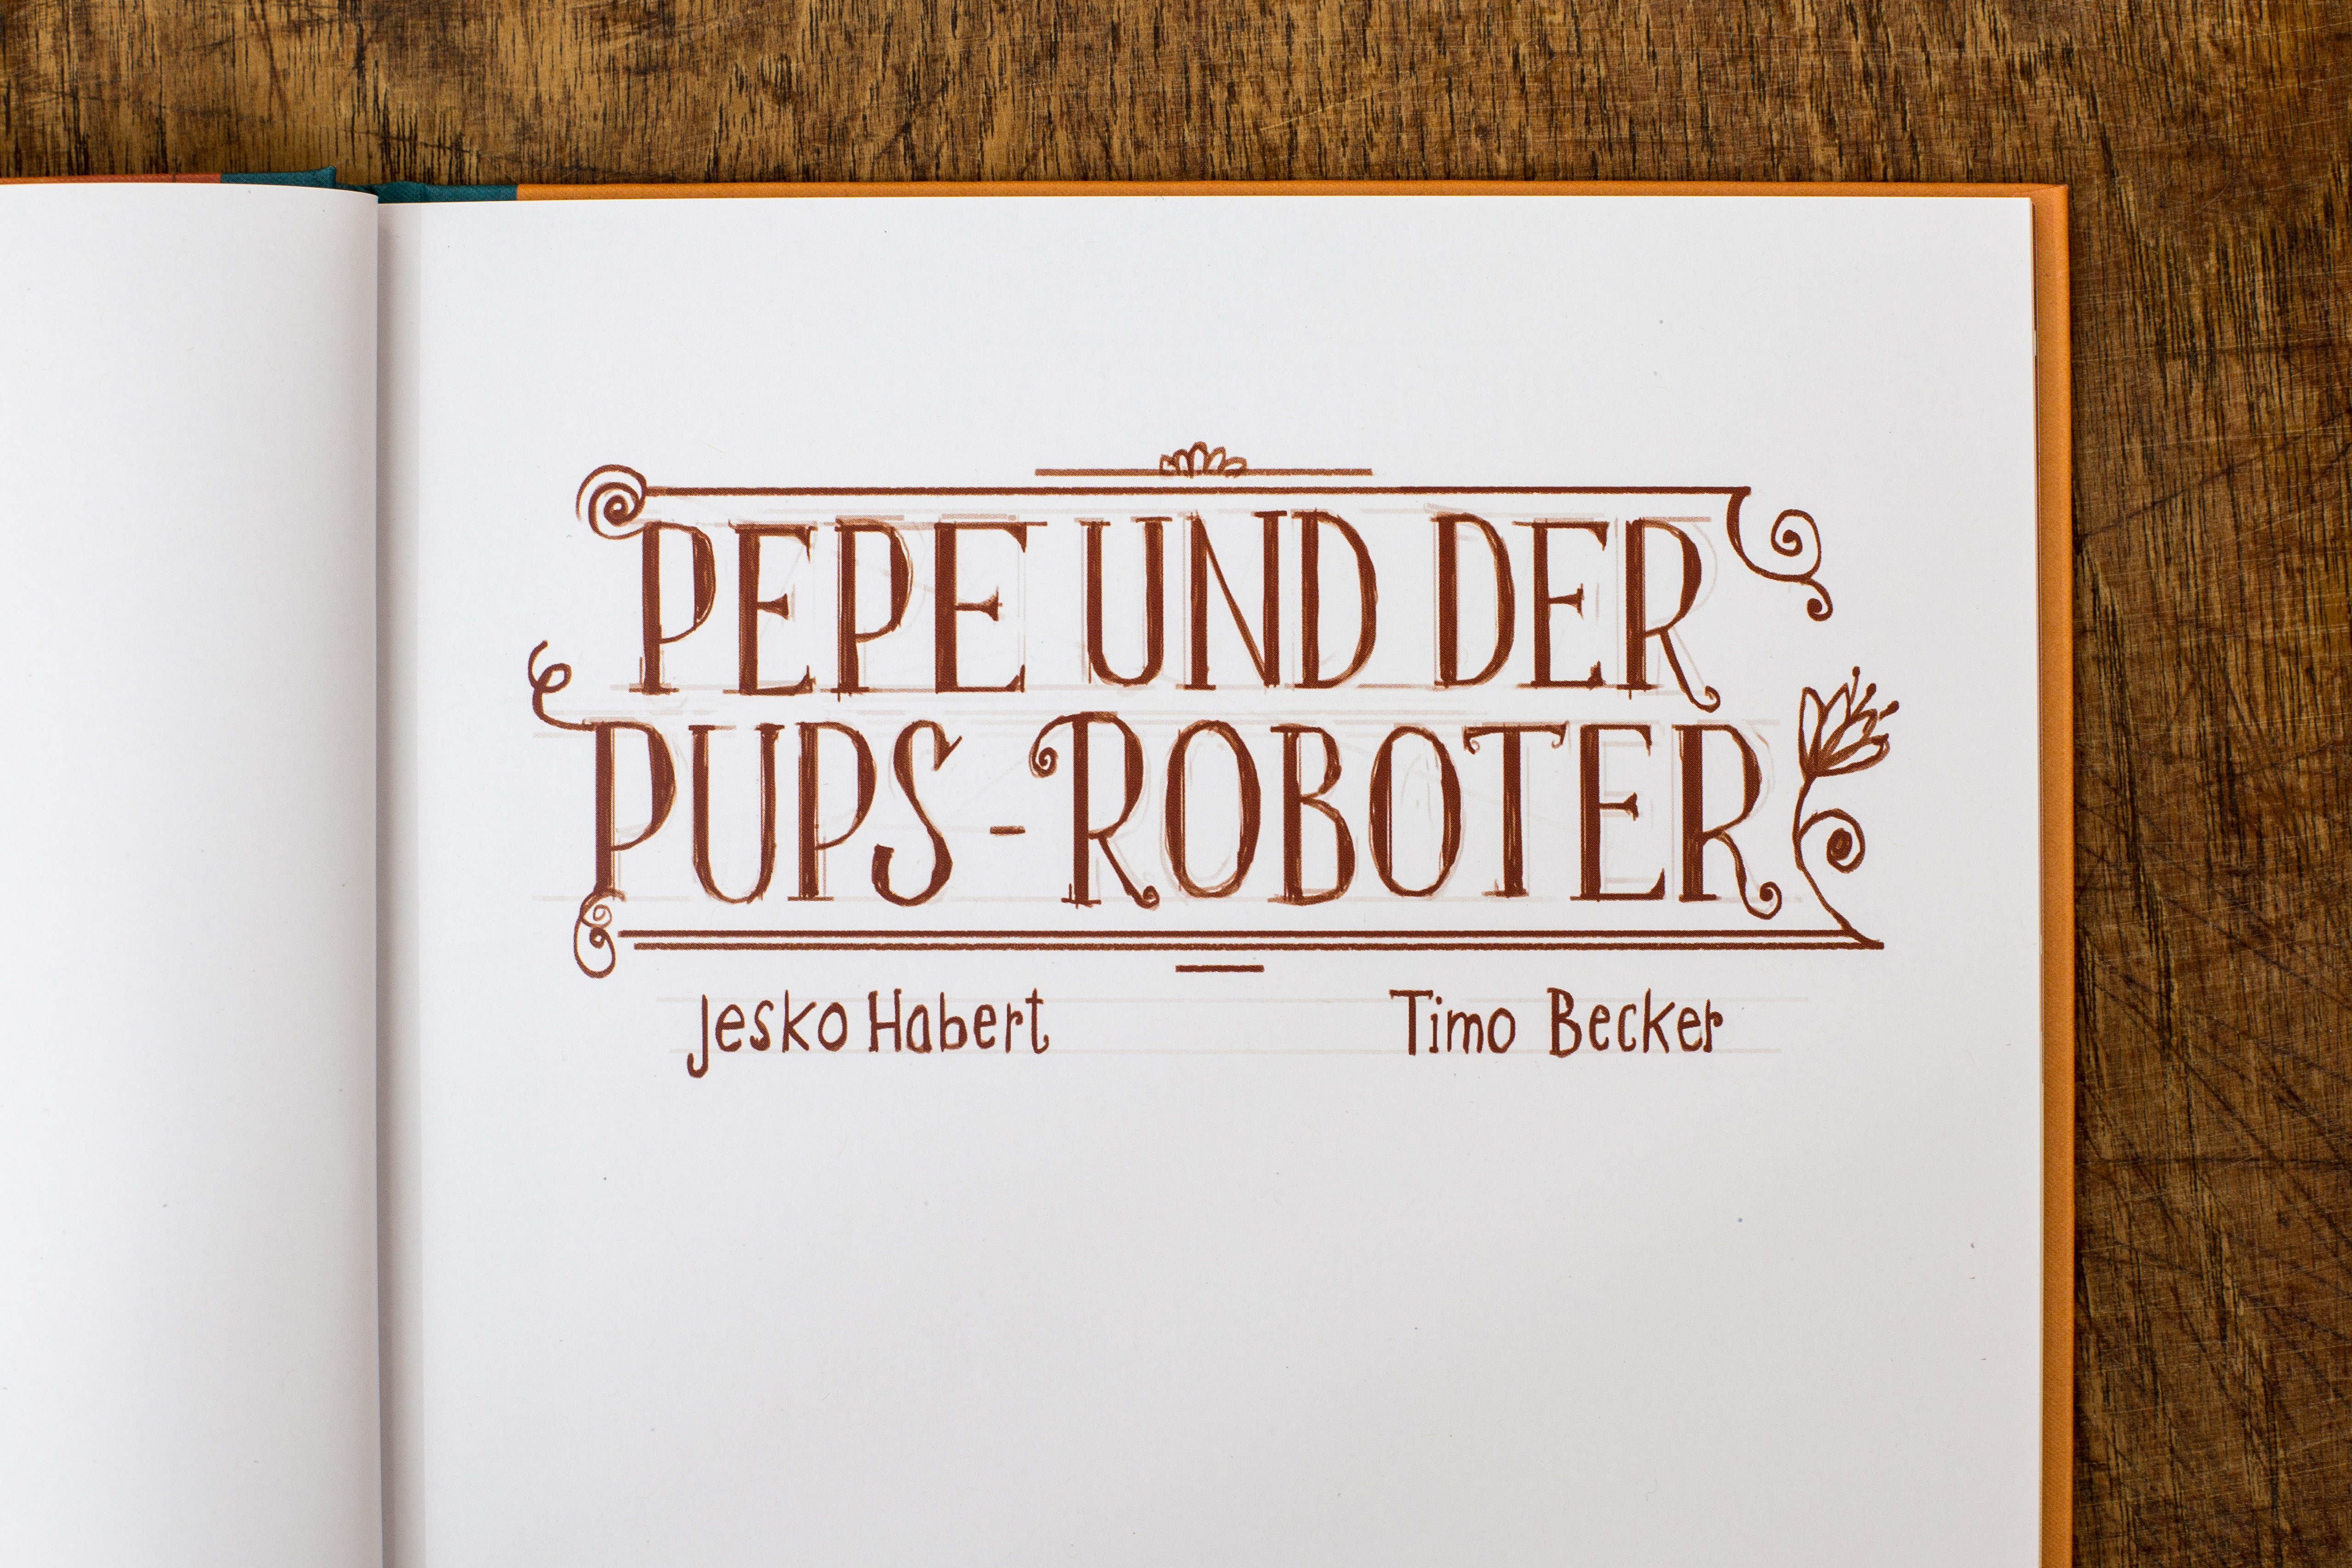 PEPE UND DER
PUPS-ROBOTER
Jesko Habert Timo Becker